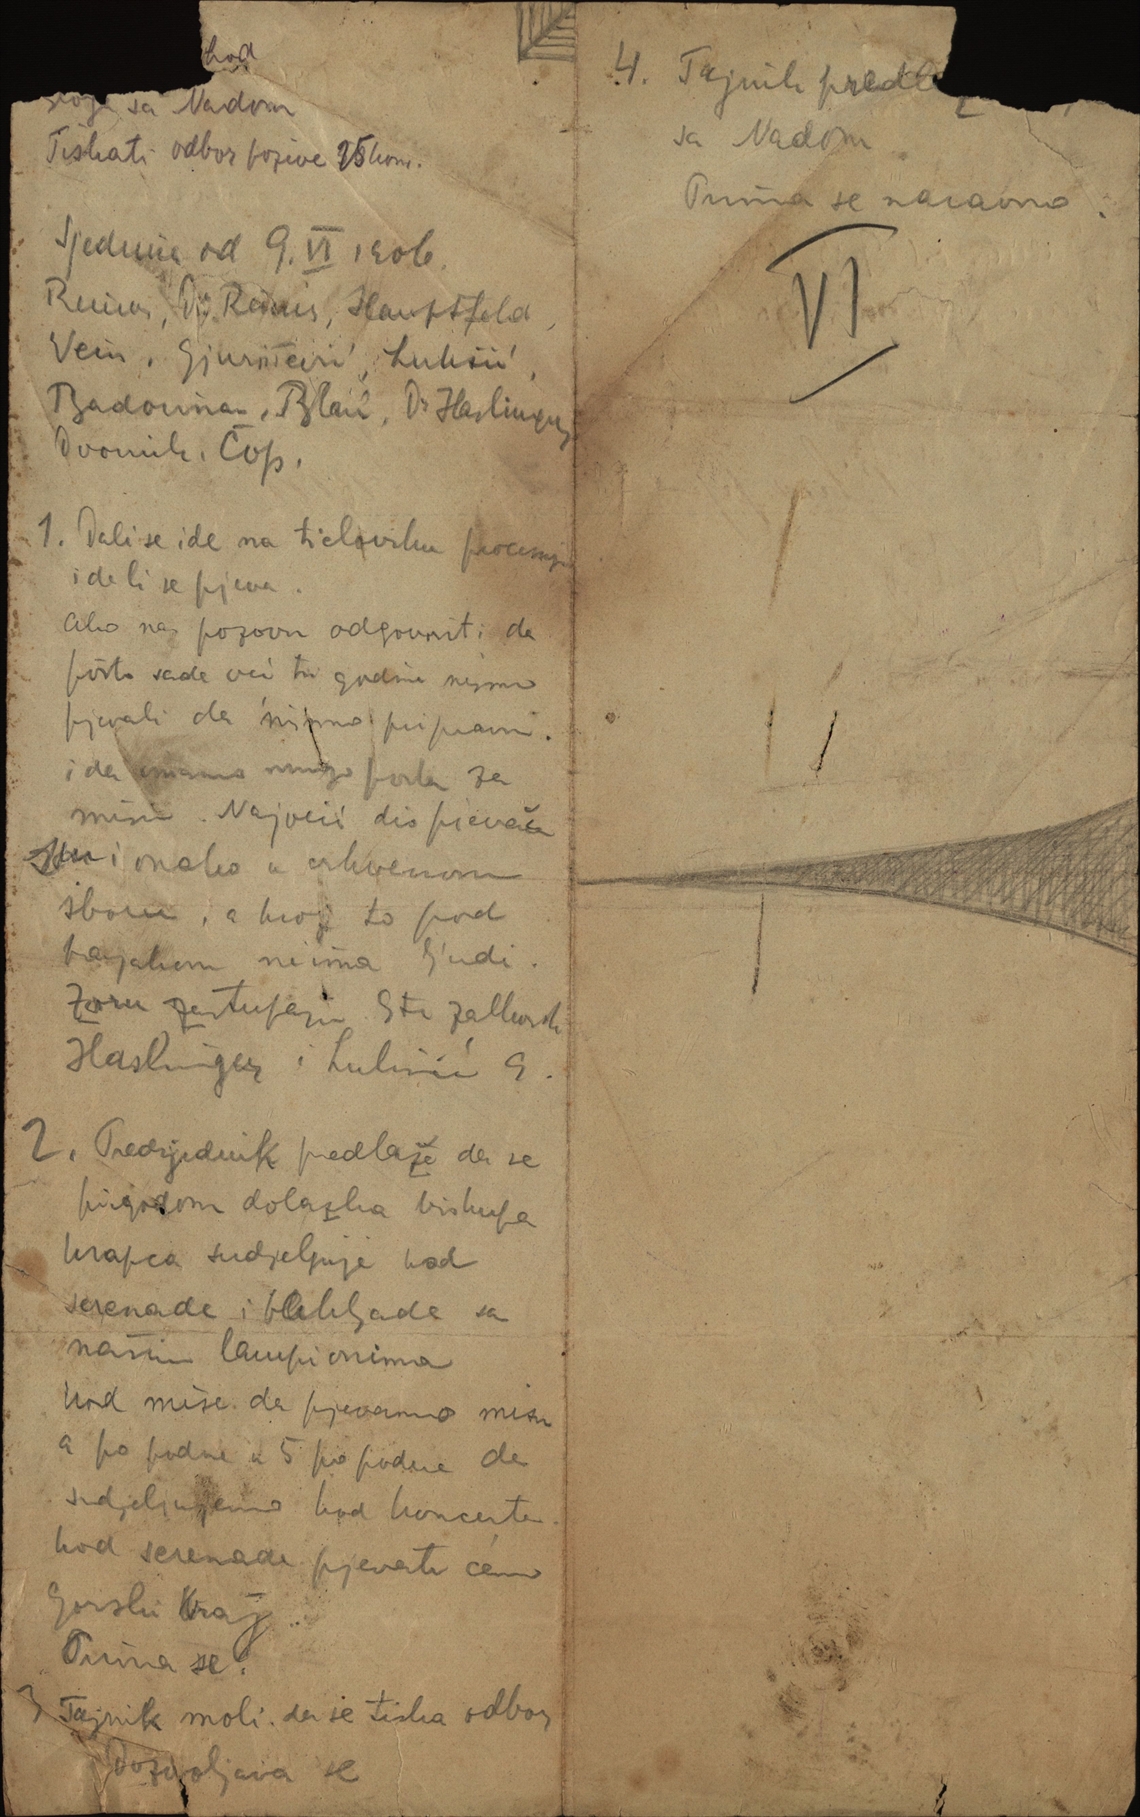 kod
sa Nadom
Tiskati odbor pozive 25 kom.
Sjednica od 9. VI 1906.
Reiner, Dr. Reinis, Hauptfeld,
Vein, Gjuričević, Lukšić,
Badovinac, Blaić, Dr Haslinger
Dvornik, Čop.
1. Dali se ide na tielovsku procesiju
i da li se pjeva.
Ako nas pozovu odgovoriti da
pošto sade već tri godine nijesmo
pjevali da nismo pripravni.
i da imamo mnogo posla za
misu. Najveći dio pjevača
su i onako u crkvenom
sboru, a kroz to pod
barjakom neima ljudi.
Zoru zastupaju Ste
Haslinger i Lukšić G.
2. Predsjednik predlaže da se
prigodom dolazka biskupa
Krapca sudjeluje kod
serenade i bakljade sa
našim lampionima
kod mise da pjevamo misu
a po podne u 5 po podne da
sudjelujemo kod koncerta.
kod serenade pjevati ćemo
Gorski Kraj
Prima se.
3 Tajnik moli da se tiska odbor
Dozvoljava se
4. Tajnik predlaže
sa Nadom
Prima se naravno.
VI